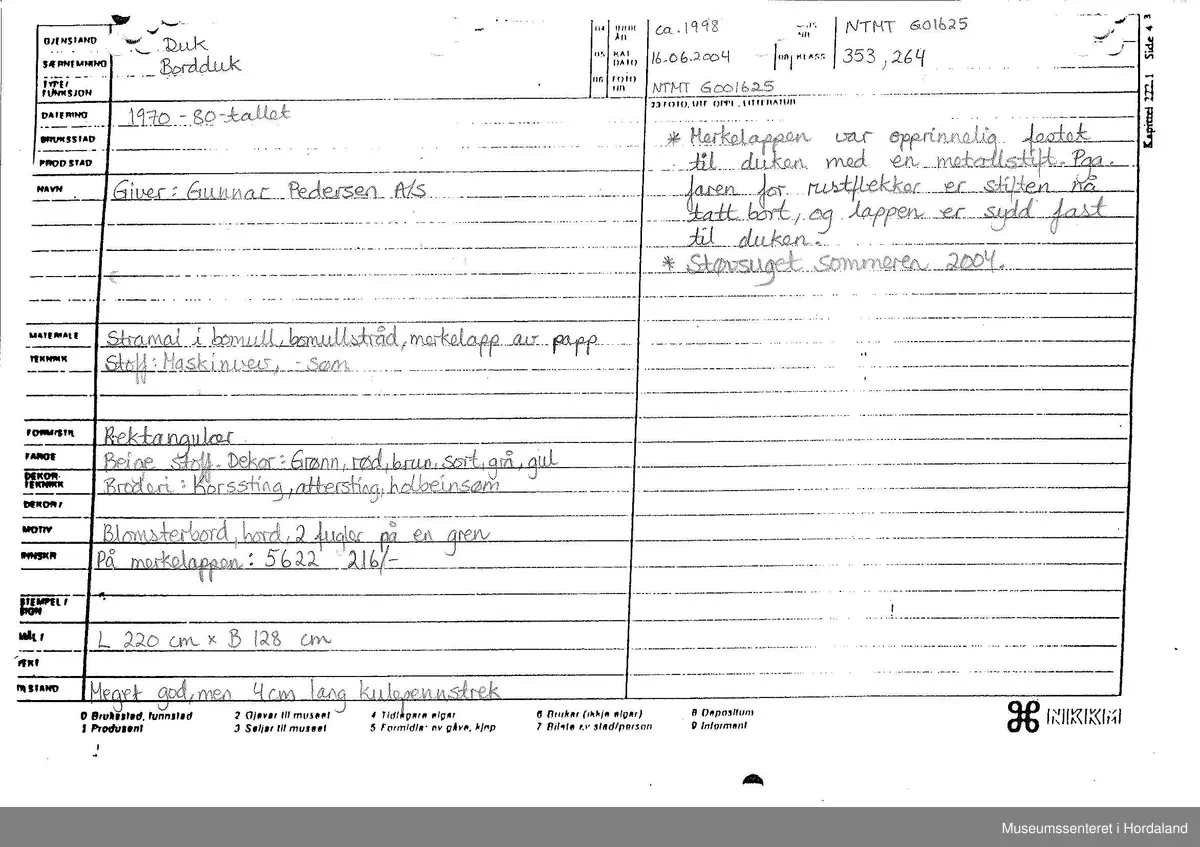 GJENSTAND Duk
SÆRNEMNING Bordduk
TYPE/
FUNKSJON
04 ÅR ca. 1998 NTMT G01625
05 KAT DATO 16.06.2004 KLASS 353, 264
06 FOTO NR NTMT G001625
DATERING 1970-80-tallet
BRUKSSTAD
PROD STAD
NAVN Giver: Gunnar Pedersen A/S
23 FOTO, UTF OPPL, LITTERATUR
* Merkelappen var opprinnelig festet
til duken med en metallstift. Pga.
faren for rustflekker er stiften nå
tatt bort, og lappen er sydd fast
til duken.
* Støvsuget sommeren 2004.
MATERIALE Stramai i bomull, bomullstråd, merkelapp av papp
TEKNIKK Stoff: Maskinvev, -søm
FORM/STIL Rektangulær
FARGE Beige stoff. Dekor: Grønn, rød, brun, sort, grå, gul
DEKOR-
TEKNIKK Broderi: Korssting, attersting, holbeinsøm
DEKOR/
MOTIV Blomsterbord, bord, 2 fugler på en gren
INNSKR På merkelappen: 5622 216/-
STEMPEL/
MÅL/ L 220 cm x B 128 cm
VEKT
TILSTAND Meget god, men 4cm lang kulepennstrek
0 Bruksstad, funnstad 2 Gjevar til museet 4 Tidlegare eigar 6 Brukar (ikkje eigar) 8 Depositum
1 Produsent 3 Seljar til museet 5 Formidlar av gåve, kjøp 7 Bilete av stad/person 9 Informant
NKKM
Kapittel 222.1 Side 4 3
Museumssenteret i Hordaland